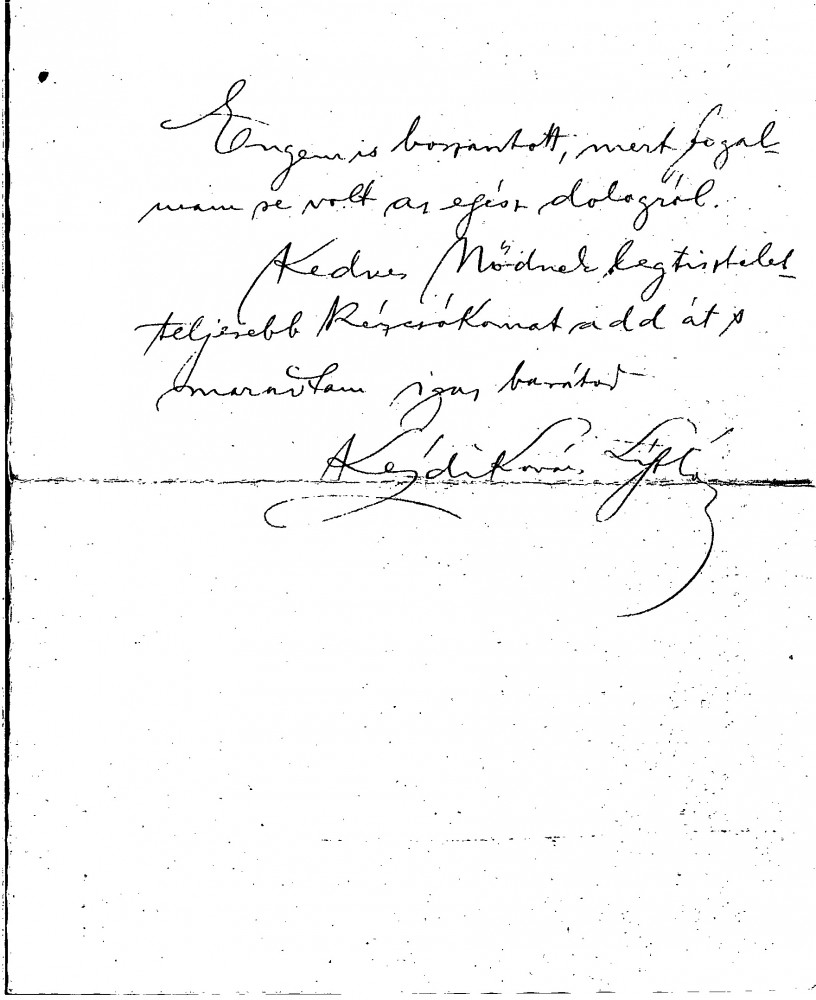 Engem is bosszantott, mert fogal-
mam se volt az egész dologról.
Kedves Nődnek legtisztelet-
teljesebb kézcsókomat add át s
maradtam igaz barátod
Kézdi Kovács László